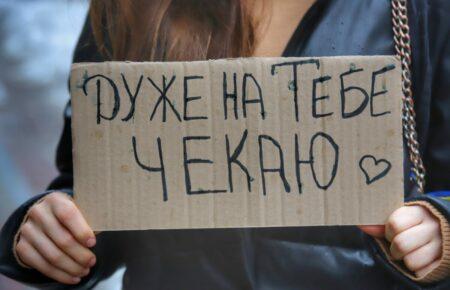 ДУЖЕ НА ТЕБЕ
ЧЕКАЮ ♡